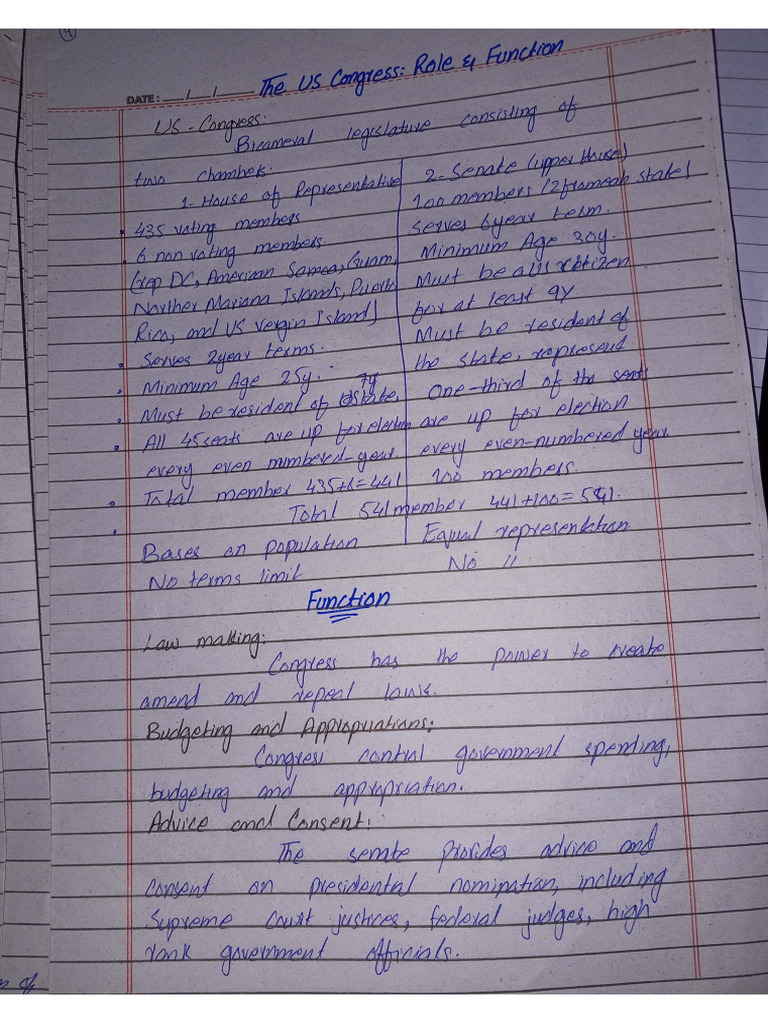 4
The US Congress: Role & Function
DATE: __/__/____
US-Congress:
Bicameral legislature consisting of
two chambers.
1- House of Representative
435 voting members
6 non voting members.
(rep DC, American Samoa, Guam,
Norther Mariana Islands, Puerto
Rico, and US Vergin Island)
Serves 2year terms.
Minimum Age 25y. 7y
Must be resident of state,
All 45 seats are up for election
every even numbered-year.
Total member 435+6=441
2- Senate (upper House)
100 members (2 from each state)
Serves 6year term.
Minimum Age 30y.
Must be a US citizen
for at least 9y
Must be resident of
the state, represent
One-third of the seats
are up for election
every even-numbered year.
100 members.
Total 541 member 441+100=541.
Bases on population
Equal representation
No terms limit
No "
Function
Law making:
Congress has the power to create
amend and repeal laws.
Budgeting and Appropriations:
Congress control government spending,
budgeting and appropriation.
Advice and Consent:
The senate provides advice and
consent on presidental nomination, including
Supreme Court justices, federal judges, high
rank government officials.